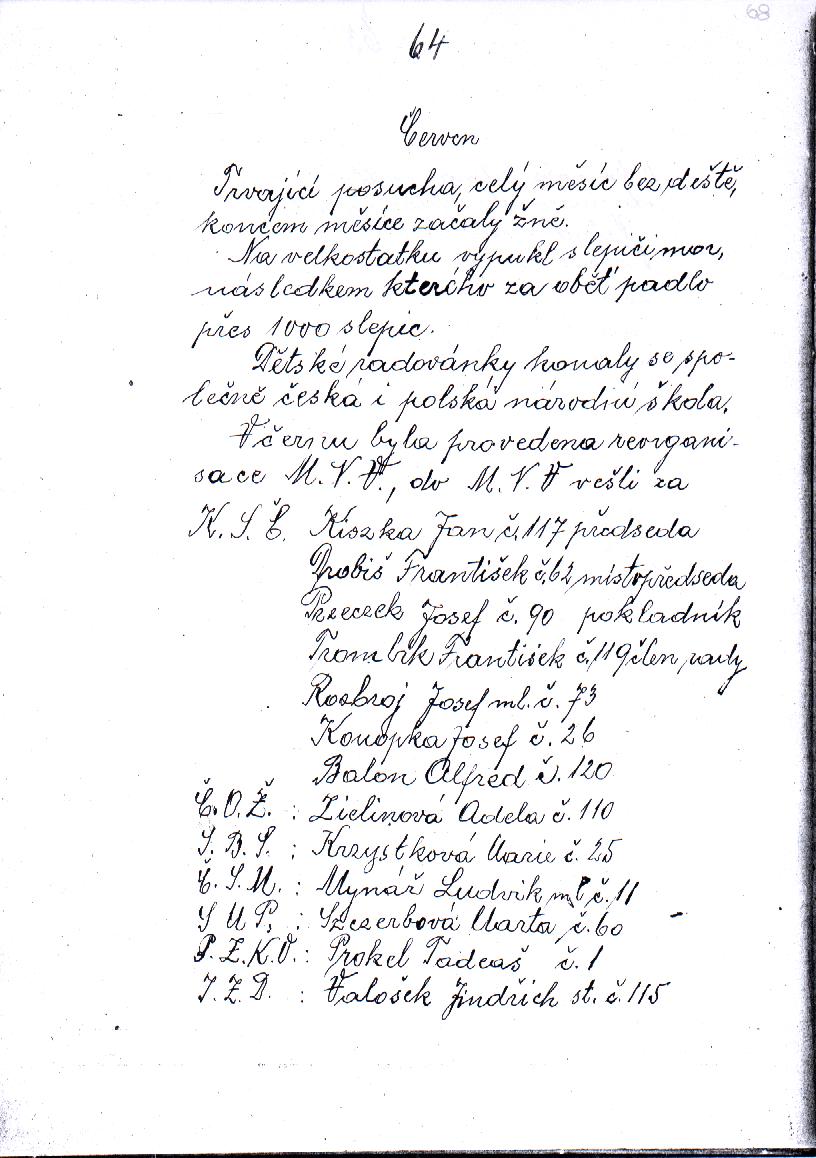 68
64
Červen
Trvající posucha, celý měsíc bez deště,
koncem měsíce začaly žně.
Na velkostatku vypukl slepičí mor,
následkem kterého za oběť padlo
přes 1000 slepic.
Dětské radovánky konaly se spo-
lečně česká i polská národní škola.
V černu byla provedena reorgani-
sace M. N. V., do M. N. V vešli za
K. S. Č. Kiszka Jan č. 117 předseda
Drobiš František č. 62 místopředseda
Pszeczek Josef č. 90 pokladník
Trombik František č. 119 člen rady
Rozbroj Josef ml. č. 73
Konopka Josef č. 26
Balon Alfréd č. 120
Č. O. Ž. : Zielinová Adela č. 110
S. B. S. : Krzystková Marie č. 25
Č. S. M. : Mynář Ludvik ml č. 11
S M P. : Szczerbová Marta č. 60
P. Z. K. V. : Prokel Tadeaš č. 1
J. Z. D. : Valošek Jindřich st. č. 115